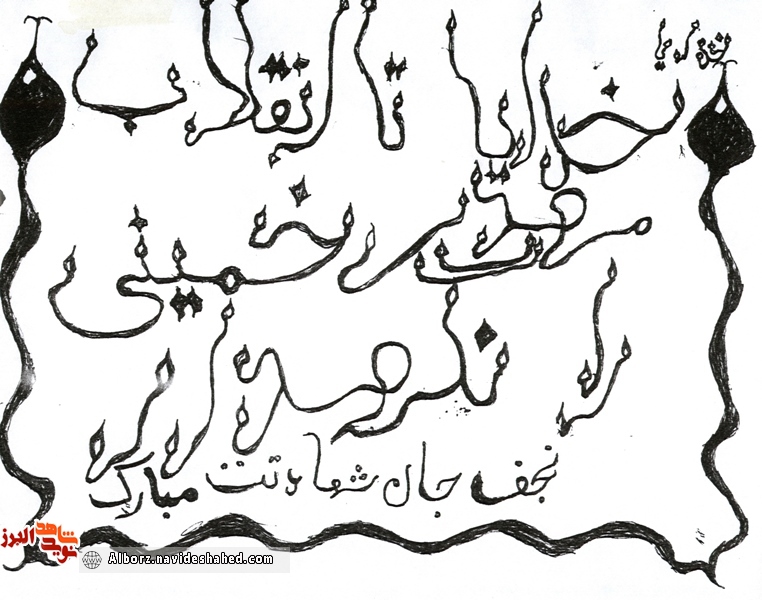 خدایا تا انقلاب
مهدی خمینی
را نگهدار
نجف جان شهادتت مبارک
نوید شاهد البرز
Alborz.navideshahed.com